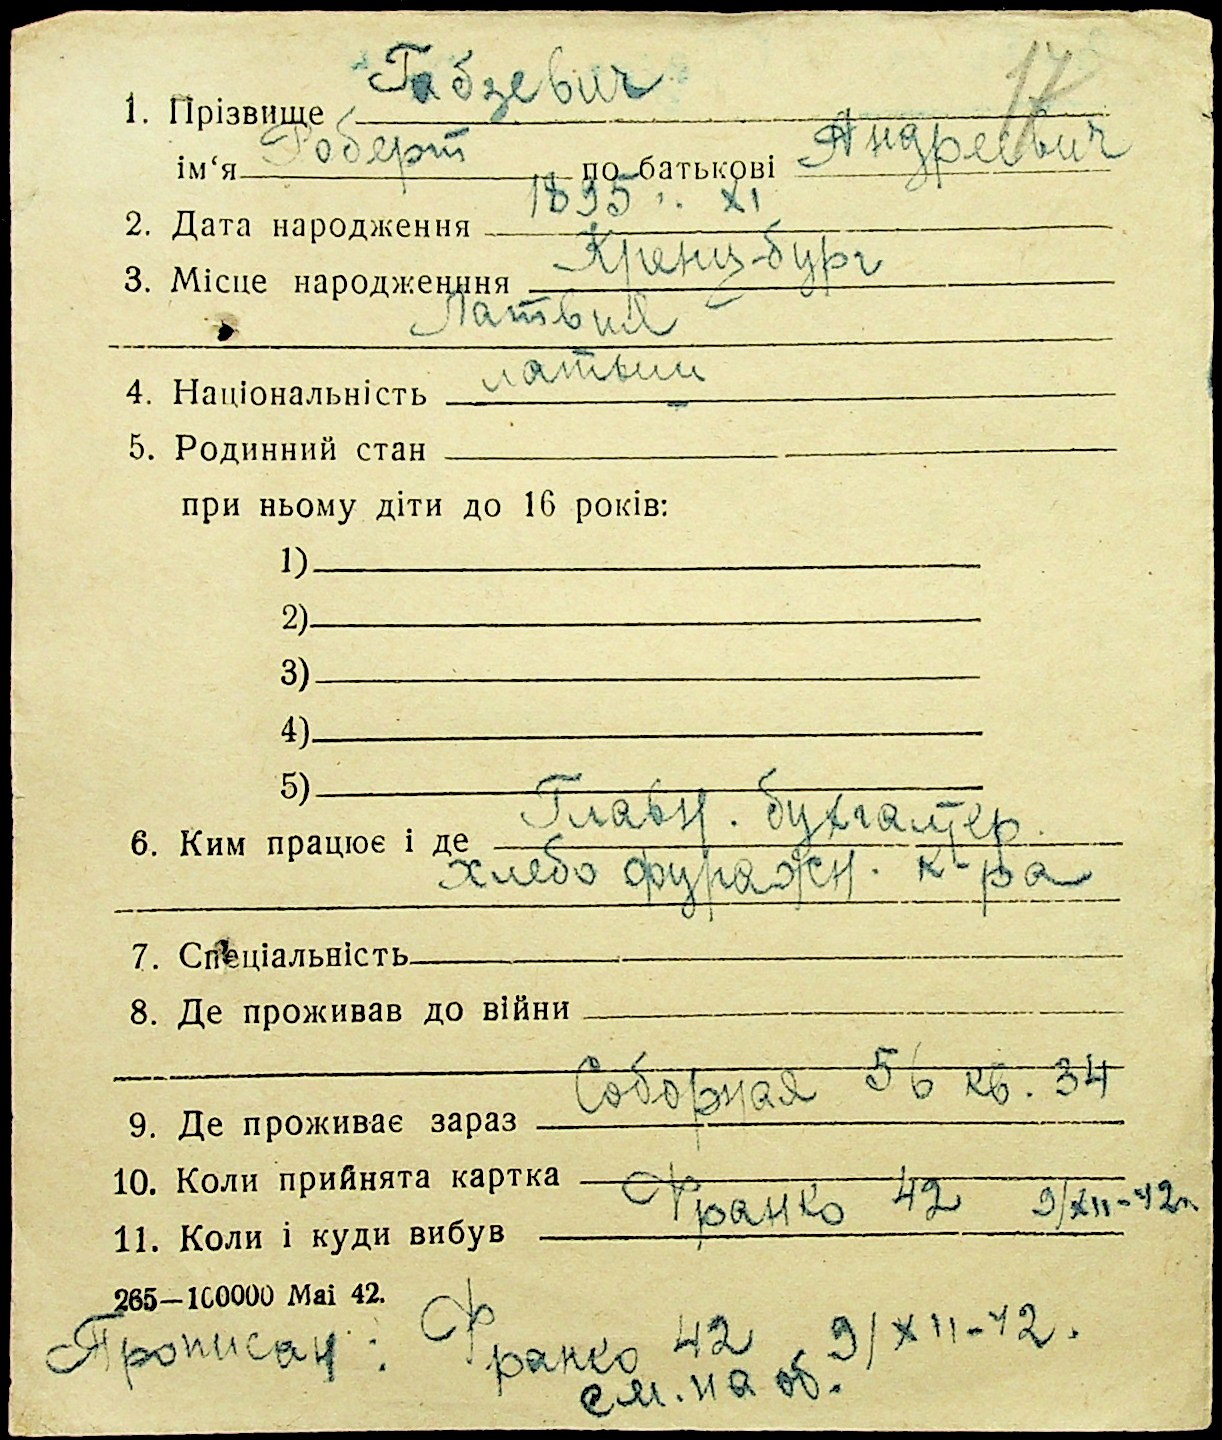 17
1. Прізвище Габзевич
ім‘я Роберт по батькові Андреевич
2. Дата народження 1895 г. XI
3. Місце народженння Кренц-бург
Латвия
4. Національність латыш
5. Родинний стан
при ньому діти до 16 років:
1)
2)
3)
4)
5)
6. Ким працює і де Главн. бухгалтер.
хлебо фуражн. к-ра
7. Спеціальність
8. Де проживав до війни
9. Де проживає зараз Соборная 56 кв. 34
10. Коли прийнята картка
11. Коли і куди вибув Франко 42 9/XII-42г.
265—100000 Mai 42.
Прописан: Франко 42 9/XII-42.
см. на об.